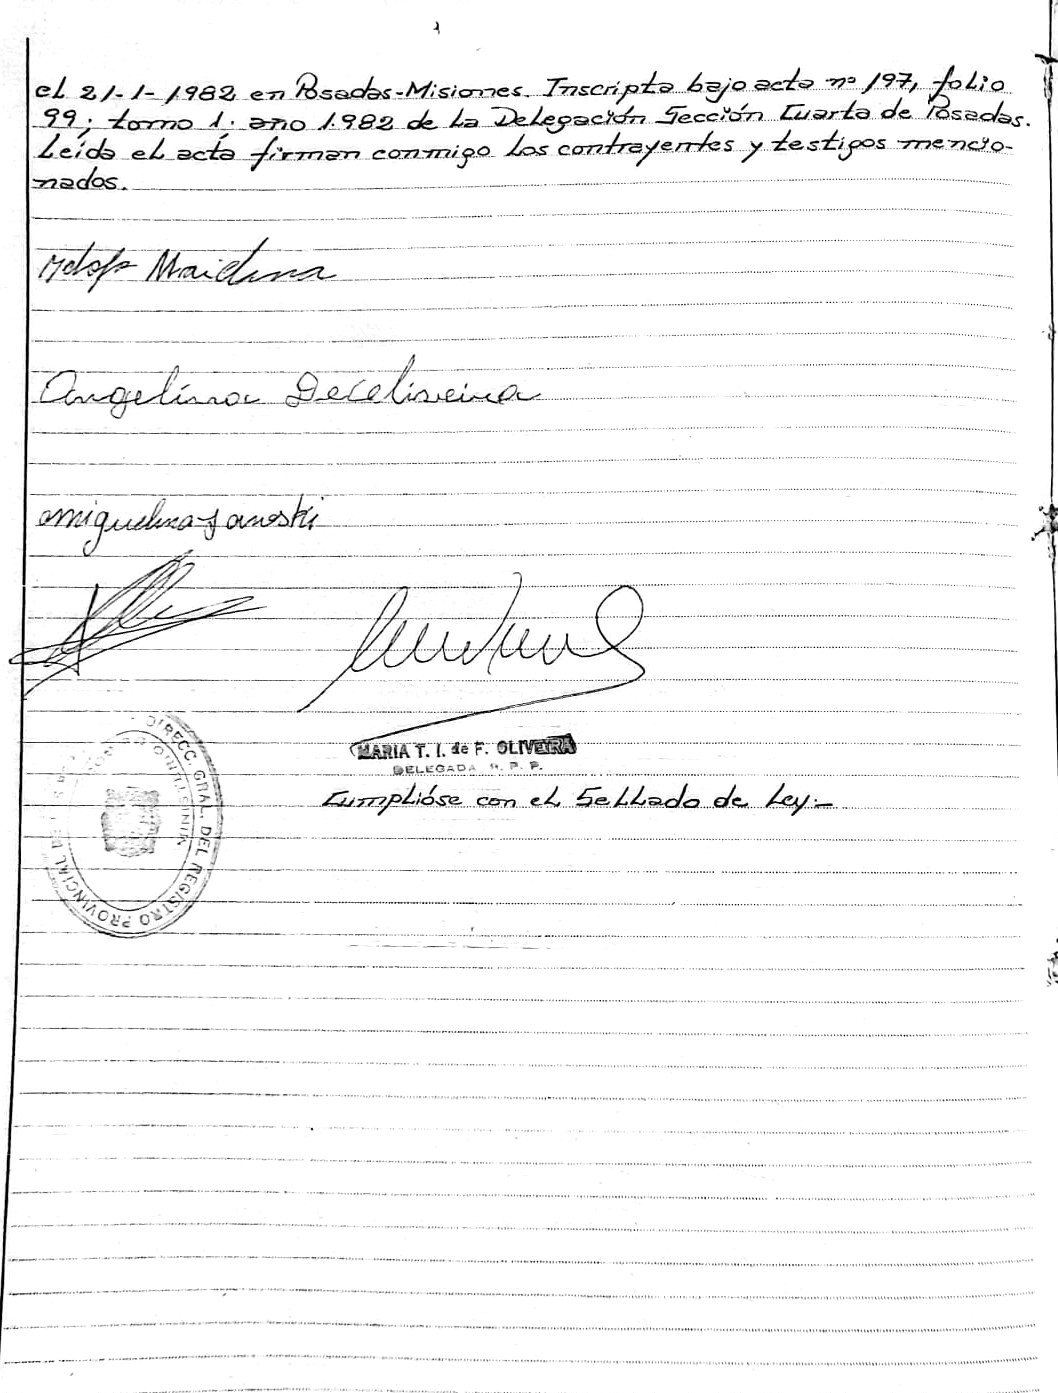 el 21-1-1982 en Posadas-Misiones. Inscripta bajo acta nº 197, folio
99; tomo 1. año 1.982 de la Delegación Sección Cuarta de Posadas.
Leída el acta firman conmigo los contrayentes y testigos mencio-
nados.
Maidana
Angelina Deceliveira
amiguelina
MARIA T. I. de F. OLIVEIRA
DELEGADA R. P. P.
Cumplióse con el Sellado de Ley.-
DIRECC. GRAL. DEL REGISTRO PROVINCIAL